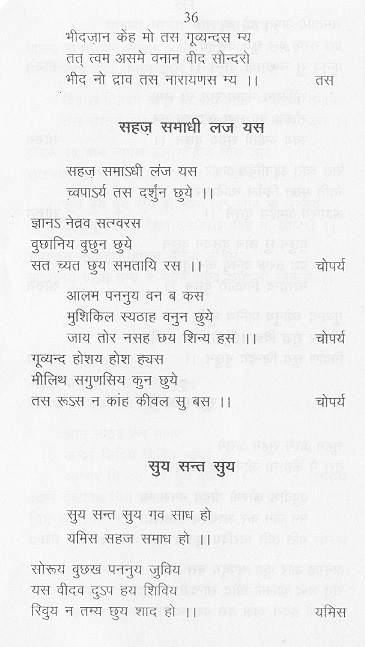 36
भीदज़ान केंह मो तस गूव्यन्दस म्य
तत् त्वम असमे वनान वीद सोन्दरो
भीद नो द्राव तस नारायणस म्य ।। तस
सहज़ समाधी लज यस
सहज़ समाऽधी लज यस
च्वपाऽर्य तस दर्शुन छुये ।
ज्ञानऽ नेत्रव सत्वरस
वुछानिय वुछुन छुये
सत च्यत छुय समतायि रस ।। चोपर्य
आलम पननुय वन ब कस
मुशिकिल स्यठाह वनुन छुये
जाय तोर नसह छय शिन्य हस ।। चोपर्य
गूव्यन्द होशय होश ह्यस
मीलिथ सगुणसिय कुन छुये
तस रूऽस न कांह कीवल सु बस ।। चोपर्य
सुय सन्त सुय
सुय सन्त सुय गव साध हो
यमिस सहज समाध हो ।।
सोरूय वुछख पननुय जुविय
यस वीदव दुऽप हय शिविय
रिवुय न तम्य छुय शाद हो ।। यमिस